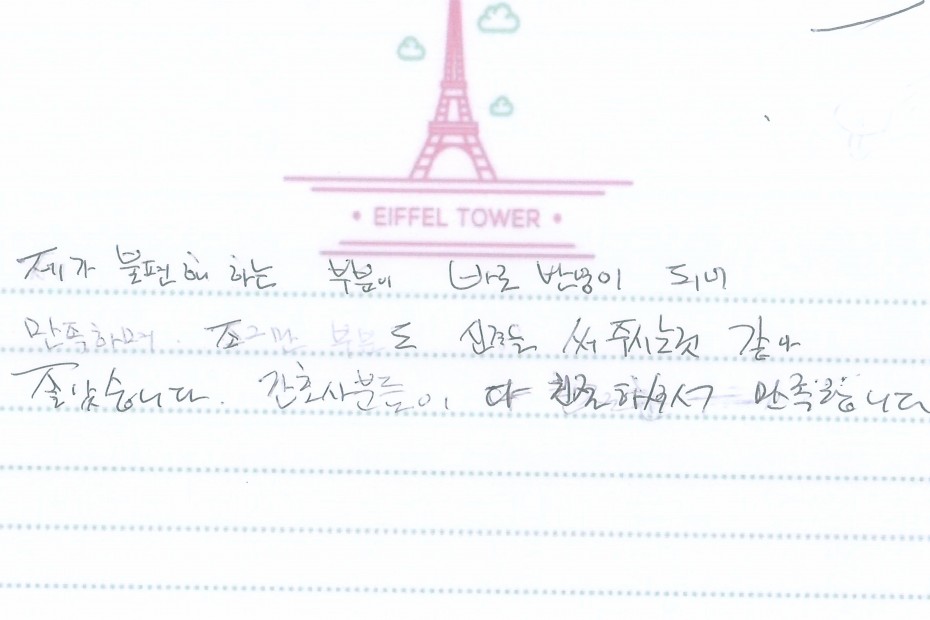 • EIFFEL TOWER •
제가 불편해 하는 부분이 바로 반영이 되네
만족하며. 조그만 부분도 신경을 써 주시는것 같아
좋았습니다. 간호사분들이 다 친절하셔서 만족했습니다